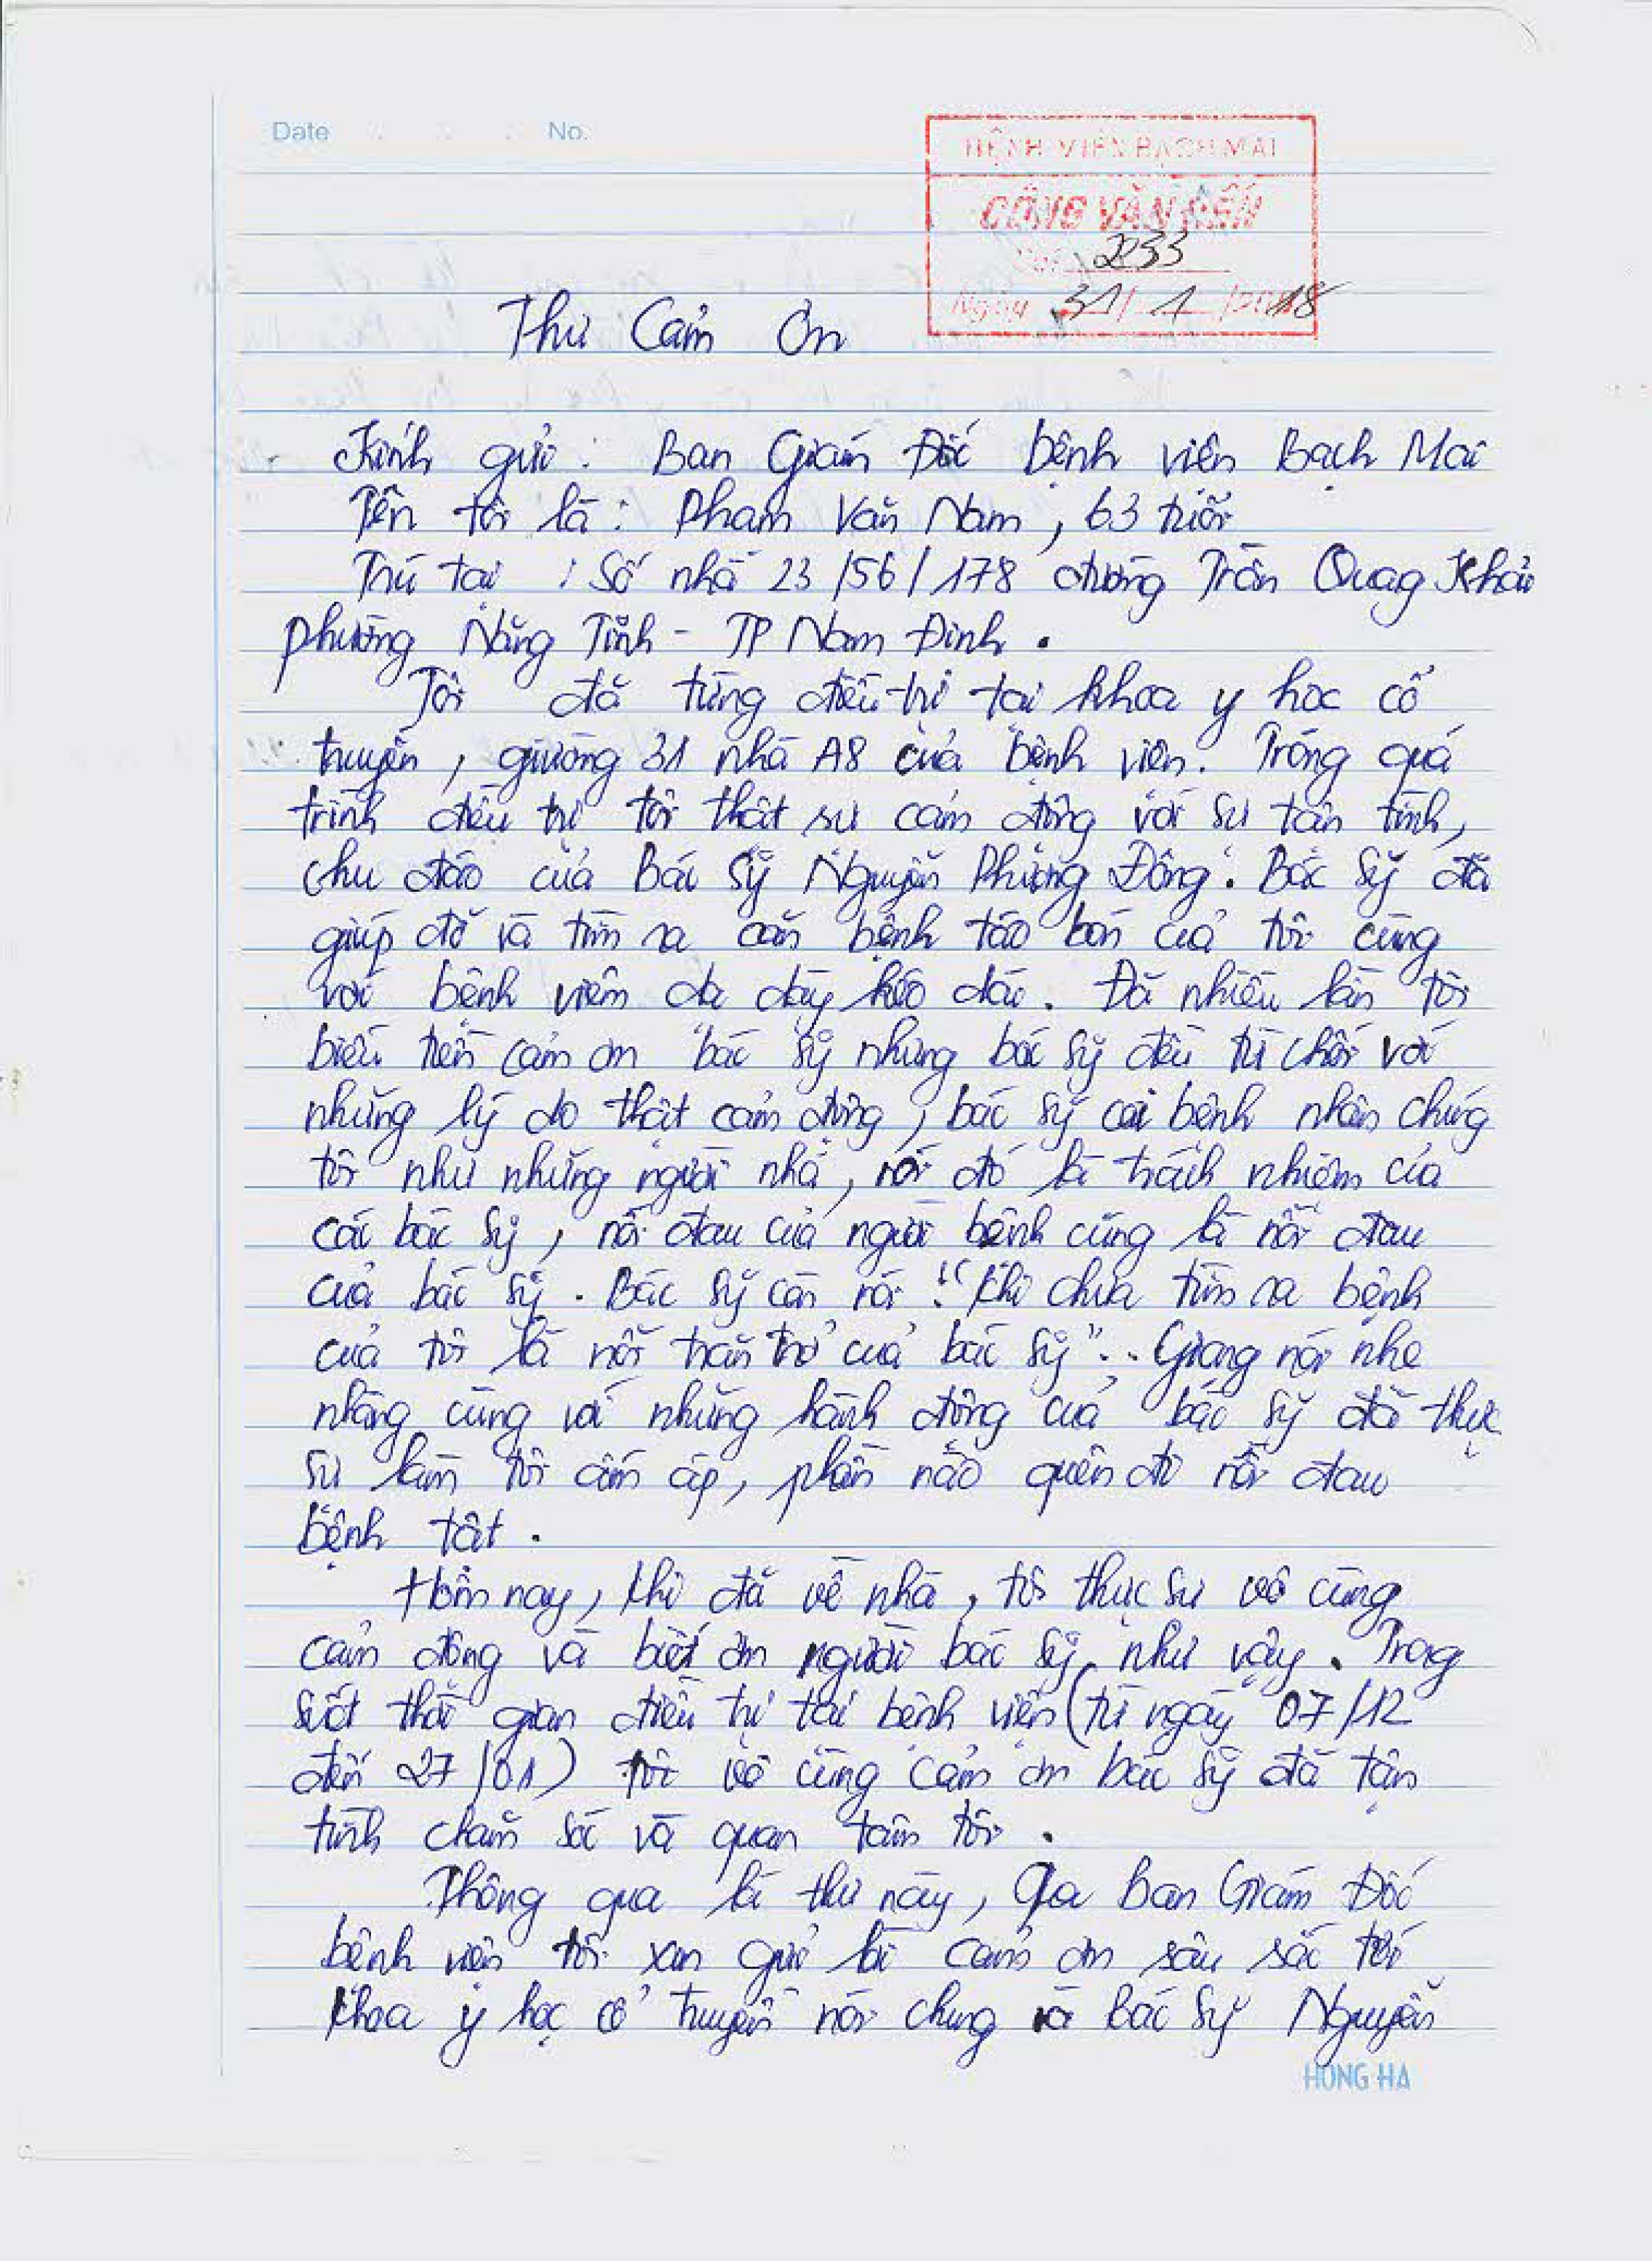 Date No.
BỆNH VIỆN BẠCH MAI
CÔNG VĂN ĐẾN
Số: 2233
Ngày 31/1/2018
Thư Cảm Ơn
Kính gửi: Ban Giám Đốc bệnh viện Bạch Mai
Tên tôi là: Phạm Văn Nam, 63 tuổi
Trú tại: Số nhà 23/56/178 đường Trần Quag Khải
phường Năng Tĩnh - TP Nam Định.
Tôi đã từng điều trị tại khoa y học cổ
truyền, giường 31 nhà A8 của bệnh viện. Trong quá
trình điều trị tôi thật sự cảm động với sự tận tình,
chu đáo của Bác sỹ Nguyễn Phương Đông. Bác sỹ đã
giúp đỡ và tìm ra căn bệnh táo bón của tôi cùng
với bệnh viêm dạ dày kéo dài. Đã nhiều lần tôi
biếu tiền cảm ơn bác sỹ nhưng bác sỹ đều từ chối với
những lý do thật cảm động, bác sỹ coi bệnh nhân chúng
tôi như những người nhà, nói đó là trách nhiệm của
các bác sỹ, nỗi đau của người bệnh cũng là nỗi đau
của bác sỹ. Bác sỹ còn nói: "Khi chưa tìm ra bệnh
của tôi là nỗi trăn trở của bác sỹ"... Giọng nói nhẹ
nhàng cùng với những hành động của bác sỹ đã thực
sự làm tôi ấm áp, phần nào quên đi nỗi đau
bệnh tật.
Hôm nay, khi đã về nhà, tôi thực sự vô cùng
cảm động và biết ơn người bác sỹ như vậy. Trong
suốt thời gian điều trị tại bệnh viện (từ ngày 07/12
đến 27/01) tôi vô cùng cảm ơn bác sỹ đã tận
tình chăm sóc và quan tâm tôi.
Thông qua lá thư này, Qua Ban Giám Đốc
bệnh viện tôi xin gửi lời cảm ơn sâu sắc tới
khoa y học cổ truyền nói chung và Bác sỹ Nguyễn
HONG HA